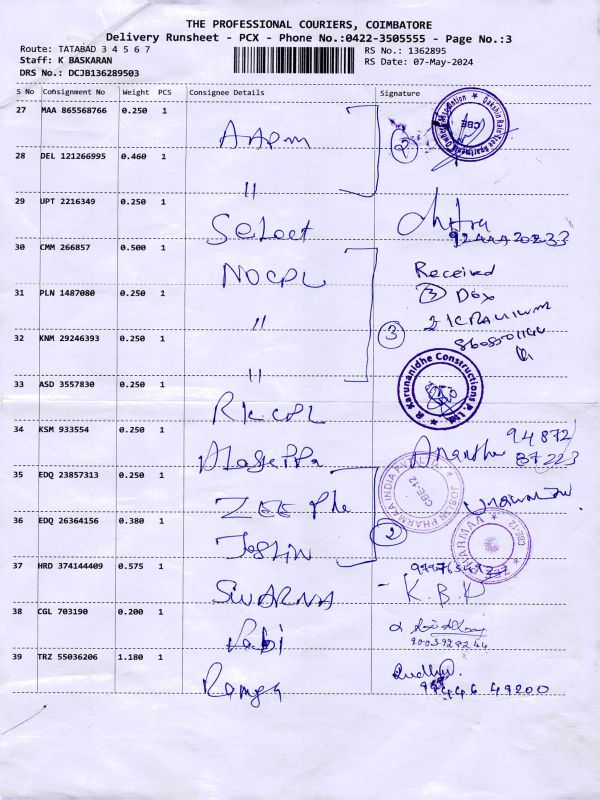 THE PROFESSIONAL COURIERS, COIMBATORE
Delivery Runsheet - PCX - Phone No.:0422-3505555 - Page No.:3
Route: TATABAD 3 4 5 6 7
RS No.: 1362895
Staff: K BASKARAN
RS Date: 07-May-2024
DRS No.: DCJB136289503
S No Consignment No Weight PCS Consignee Details Signature
27 MAA 865568766 0.250 1
2
28 DEL 121266995 0.460 1
"
29 UPT 2216349 0.250 1 Select
30 CMM 266857 0.500 1 NOCPL Received
31 PLN 1487080 0.250 1 " 3 Dox
32 KNM 29246393 0.250 1 " 3
33 ASD 3557830 0.250 1
Karunanidhe Constructions P. Ltd
34 KSM 933554 0.250 1 Anantha 94872
87223
35 EDQ 23857313 0.250 1 ZEE
JOSLIN PHARMAA INDIA PVT CBE-12
36 EDQ 26364156 0.380 1 Joslin 2
37 HRD 374144409 0.575 1 SWARNA K.B.P
38 CGL 703190 0.200 1 Rabi
9003928244
39 TRZ 55036206 1.180 1 Ramya